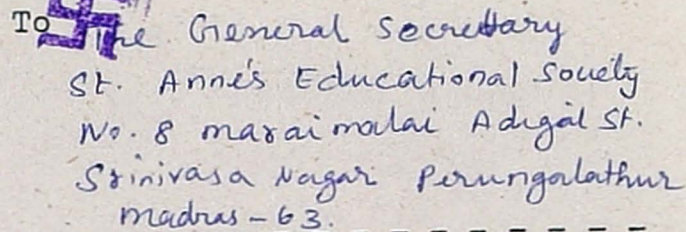 To The General Secrettary
St. Anne's Educational Souety
No. 8 maraimalai Adigal St.
Srinivasa Nagar Perungalathur
madras - 63.